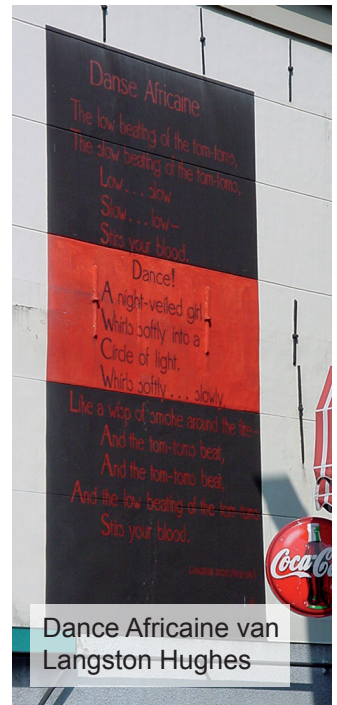 Danse Africaine
The low beating of the tom-toms,
The slow beating of the tom-toms,
Low . . . slow
Slow . . . low–
Stirs your blood.
Dance!
A night-veiled girl
Whirls softly into a
Circle of light.
Whirls softly . . . slowly,
Like a wisp of smoke around the fire–
And the tom-toms beat,
And the tom-toms beat,
And the low beating of the tom-toms
Stirs your blood.
Coca-C
Dance Africaine van
Langston Hughes